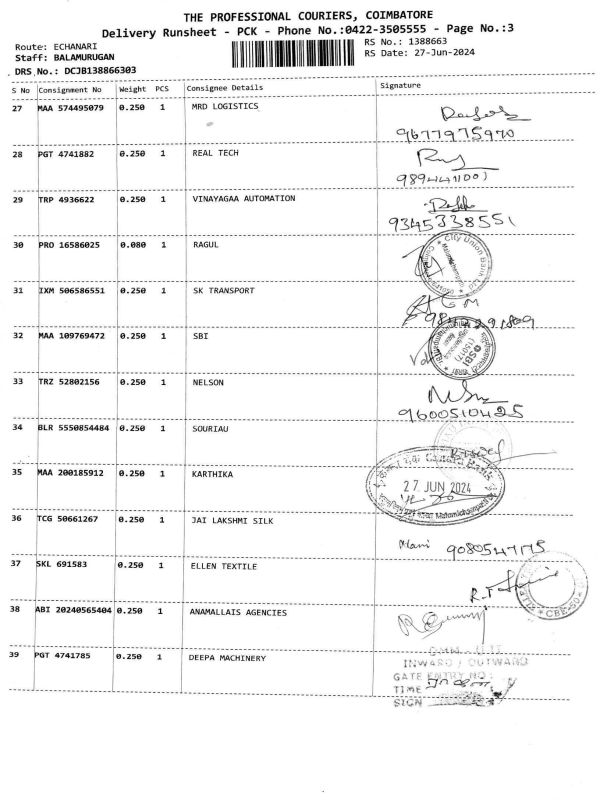 THE PROFESSIONAL COURIERS, COIMBATORE
Delivery Runsheet - PCK - Phone No.:0422-3505555 - Page No.:3
Route: ECHANARI
Staff: BALAMURUGAN
DRS No.: DCJB138866303
RS No.: 1388663
RS Date: 27-Jun-2024
S No Consignment No Weight PCS Consignee Details Signature
27 MAA 574495079 0.250 1 MRD LOGISTICS
9677975970
28 PGT 4741882 0.250 1 REAL TECH
29 TRP 4936622 0.250 1 VINAYAGAA AUTOMATION
9345338551
30 PRO 16586025 0.080 1 RAGUL
City Union Bank Ltd
31 IXM 506586551 0.250 1 SK TRANSPORT
32 MAA 109769472 0.250 1 SBI
SBI
33 TRZ 52802156 0.250 1 NELSON
9600510425
34 BLR 5550854484 0.250 1 SOURIAU
35 MAA 200185912 0.250 1 KARTHIKA
Canara Bank
27 JUN 2024
36 TCG 50661267 0.250 1 JAI LAKSHMI SILK
Mani
37 SKL 691583 0.250 1 ELLEN TEXTILE
38 ABI 20240565404 0.250 1 ANAMALLAIS AGENCIES
39 PGT 4741785 0.250 1 DEEPA MACHINERY
INWARD / OUTWARD
GATE ENTRY NO:
TIME
SIGN